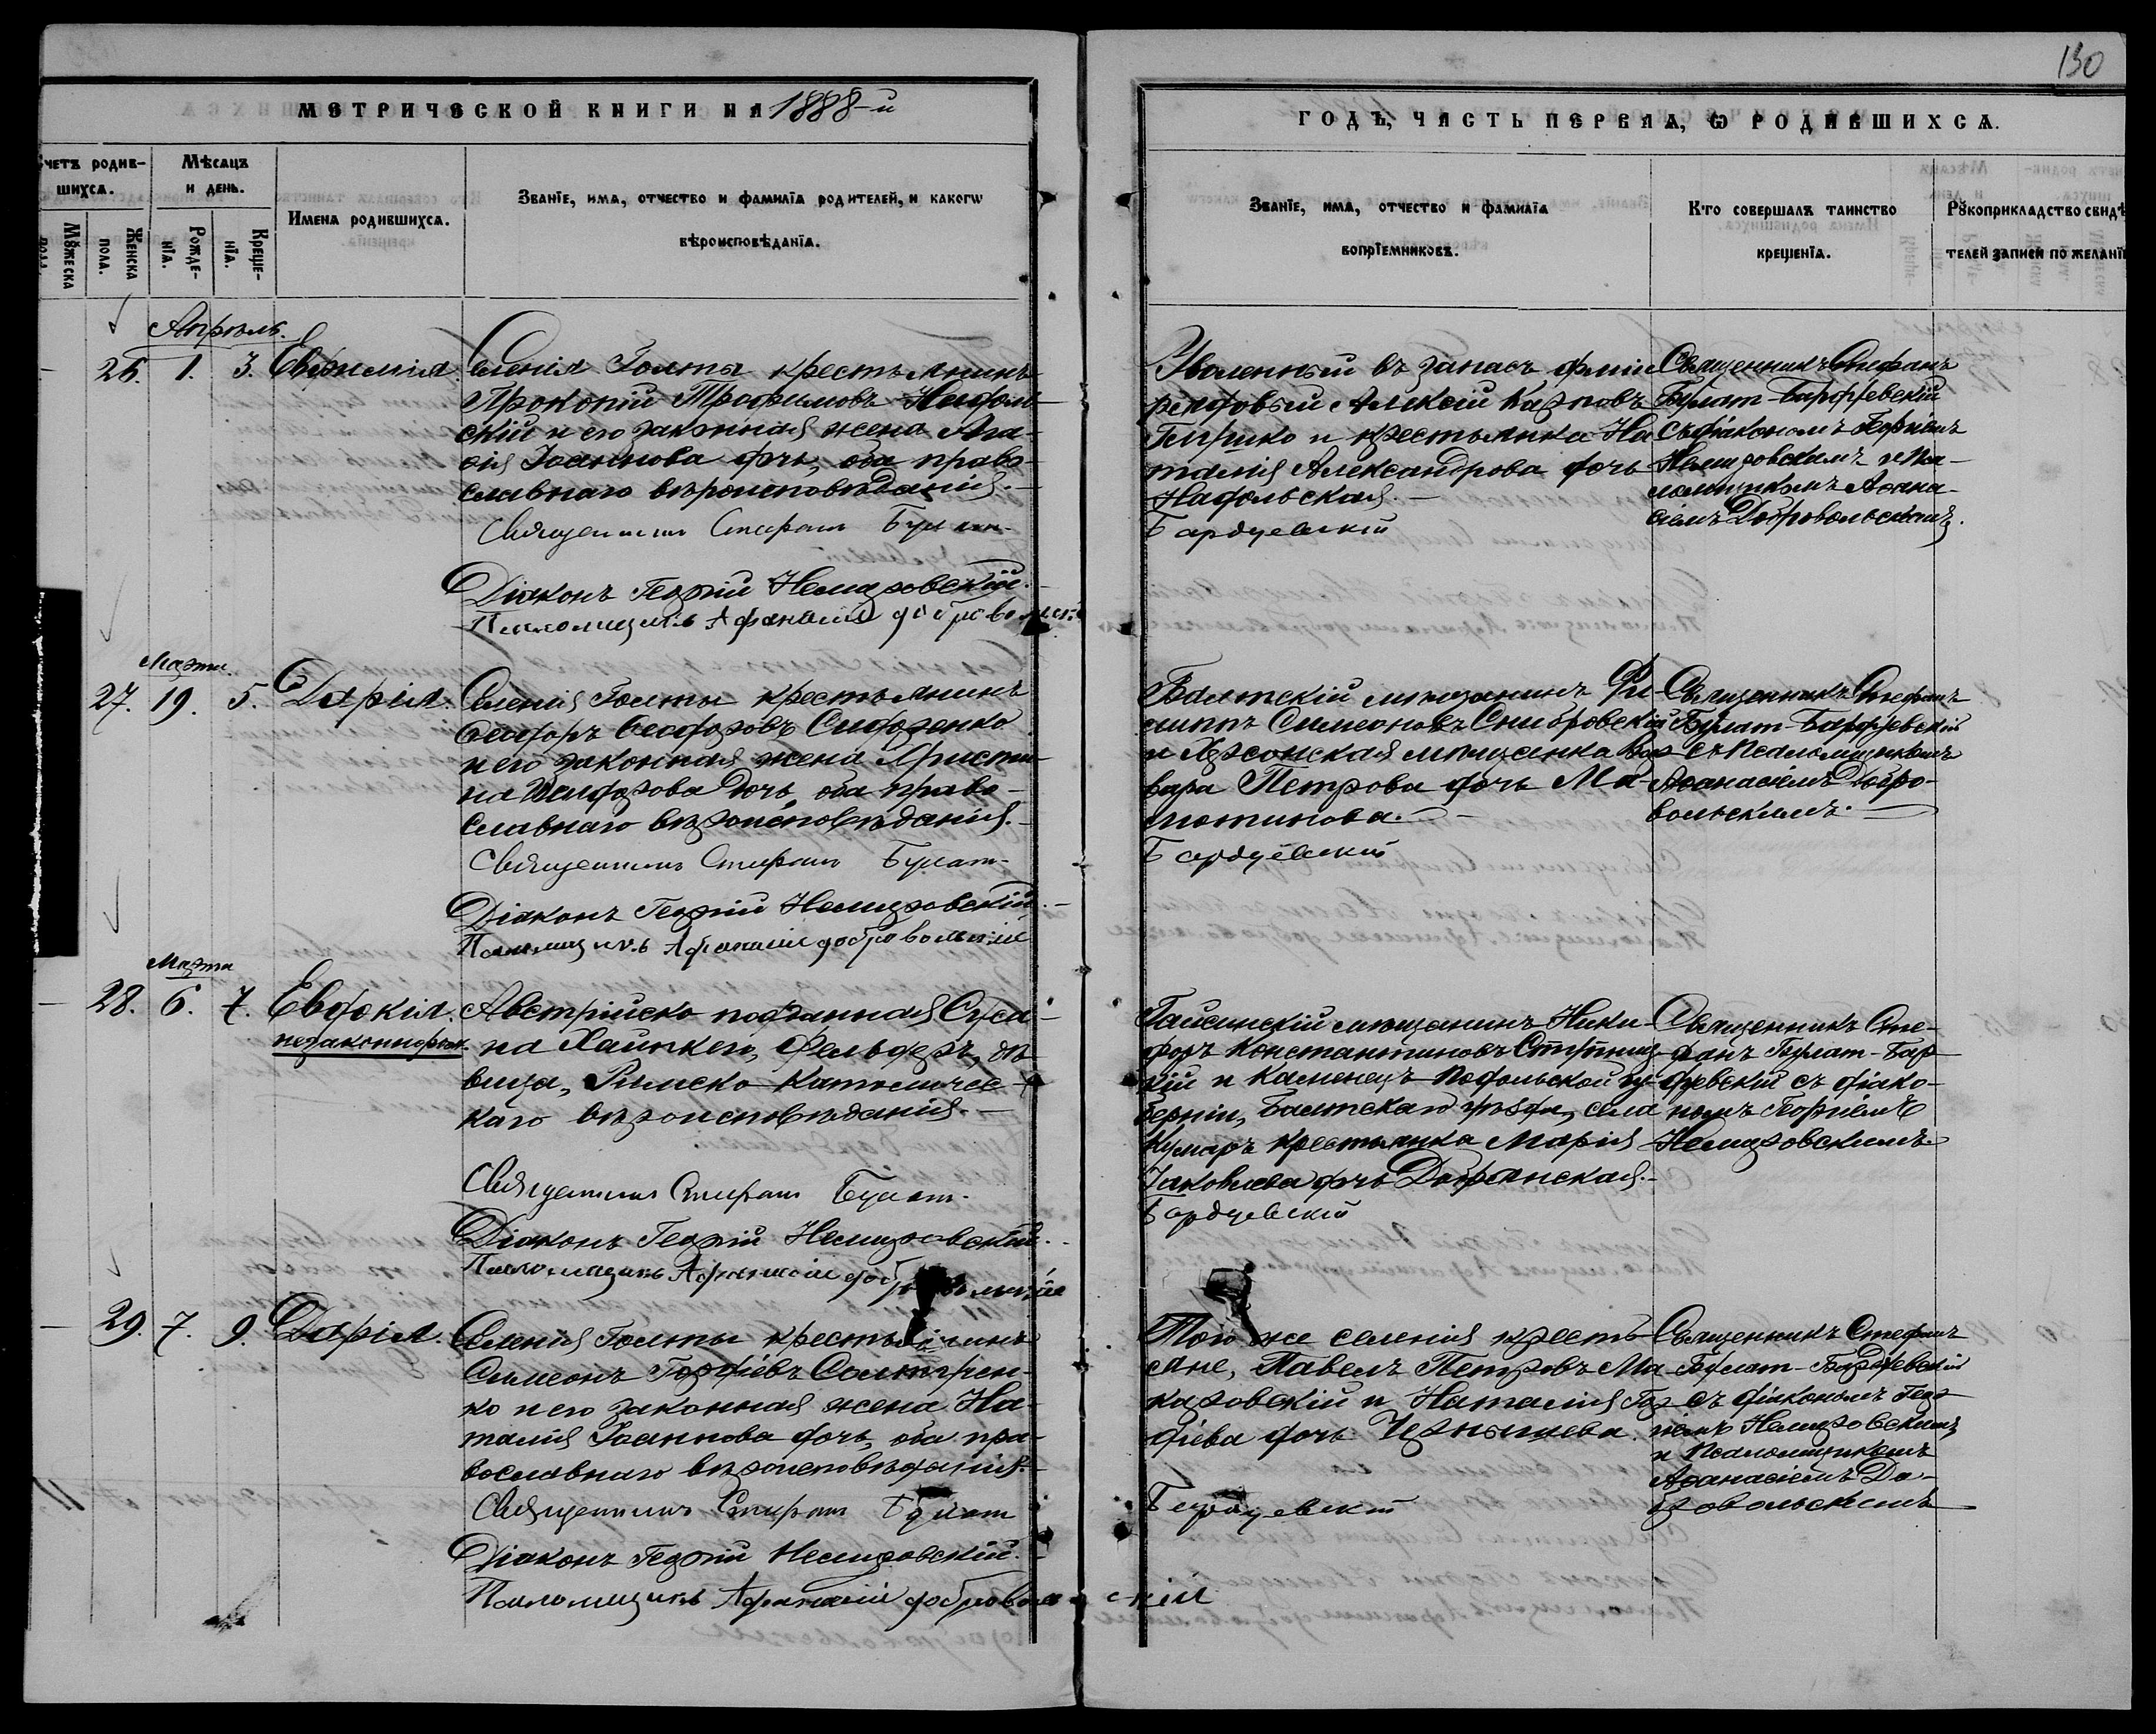 130
МЕТРИЧЕСКОЙ КНИГИ НА 1888-й
ГОДЪ, ЧАСТЬ ПЕРВАЯ, Ѡ РОДИВШИХСѦ.
Счетъ родив-
шихсѧ.
Мꙋжеска
пола.
Женска
пола.
Мѣсѧцъ
и день.
Рожде-
нїѧ.
Креще-
нїѧ.
Имена родившихсѧ.
Званїе, имѧ, отчество и фамилїѧ родителей, и какогѡ
вѣроисповѣданїѧ.
Званїе, имѧ, отчество и фамилїѧ
вопрїемниковъ.
Кто совершалъ таинство
крещенїѧ.
Рꙋкоприкладство свидѣ
телей записи по желанїю
Апрѣль.
26. 1. 3. Евфимія.
Селенія Голты крестьянинъ
Прокопій Трофимовъ Надоль-
скій и его законная жена Ага-
ѳія Іоаннова дочь, оба право-
славнаго вѣроисповѣданія.
Священникъ Стефанъ Булат-
Діаконъ Георгій Немировскій.
Псаломщикъ Афанасій Добровольскі
Уволенный въ запасъ арміи
рядовый Алексій Карповъ
и крестьянка На
талія Александрова дочь
Надольская.
Бардуевскій
Священникъ Стефанъ
Булат-Бардуевскій
съ діакономъ Георгіемъ
Немировскимъ и Пса-
ломщикомъ Аѳана-
сіемъ Добровольскимъ.
Марта.
27. 19. 5. Дарія.
Селенія Голты крестьянинъ
Ѳеодоръ Ѳеодоровъ Сидоренко
и его законная жена Христи-
на Никифорова дочь, оба право-
славнаго вѣроисповѣданія.
Священникъ Стефанъ Булат-
Діаконъ Георгій Немировскій.
Псаломщикъ Афанасій Добровольскій
Балтскій мѣщанинъ Фи-
липпъ Симеоновъ
и Херсонская мѣщанка Вар-
вара Петрова дочь Ма-
мотинова.
Бардуевскій
Священникъ Стефанъ
Булат-Бардуевскій
съ Псаломщикомъ
Аѳанасіемъ Добро-
вольскимъ.
Марта
28. 6. 7. Евдокія.
незаконнорож.
Австрійско подданная Суса-
на Фельдеръ, дѣ-
вица, Римско-Католичес-
каго вѣроисповѣданія.
Священникъ Стефанъ Булат-
Діаконъ Георгій Немировскій.
Псаломщикъ Афанасій Добровольскій
Гайсинскій мѣщанинъ Ники-
форъ Константиновъ
кій и Каменецъ-Подольской гу-
берніи, Балтскаго уѣзда, села
Кумаръ крестьянка Марія
Іаковлева дочь Добранская.
Бардуевскій
Священникъ Сте-
фанъ Булат-Бар-
дуевскій съ діако-
номъ Георгіемъ
Немировскимъ.
29. 7. 9. Дарія.
Селенія Голты крестьянинъ
Симеонъ Гордіевъ
ко и его законная жена На-
талія Іоаннова дочь, оба пра-
вославнаго вѣроисповѣданія.
Священникъ Стефанъ Булат
Діаконъ Георгій Немировскій.
Псаломщикъ Афанасій Добровольскій
Того же селенія кресть-
яне, Павелъ Петровъ Ма-
каровскій и Наталія Гор-
діева дочь Чернышева.
Бардуевскій
Священникъ Стефанъ
Булат-Бардуевскій
съ діакономъ Геор-
гіемъ Немировскимъ
и Псаломщикомъ
Аѳанасіемъ До-
бровольскимъ